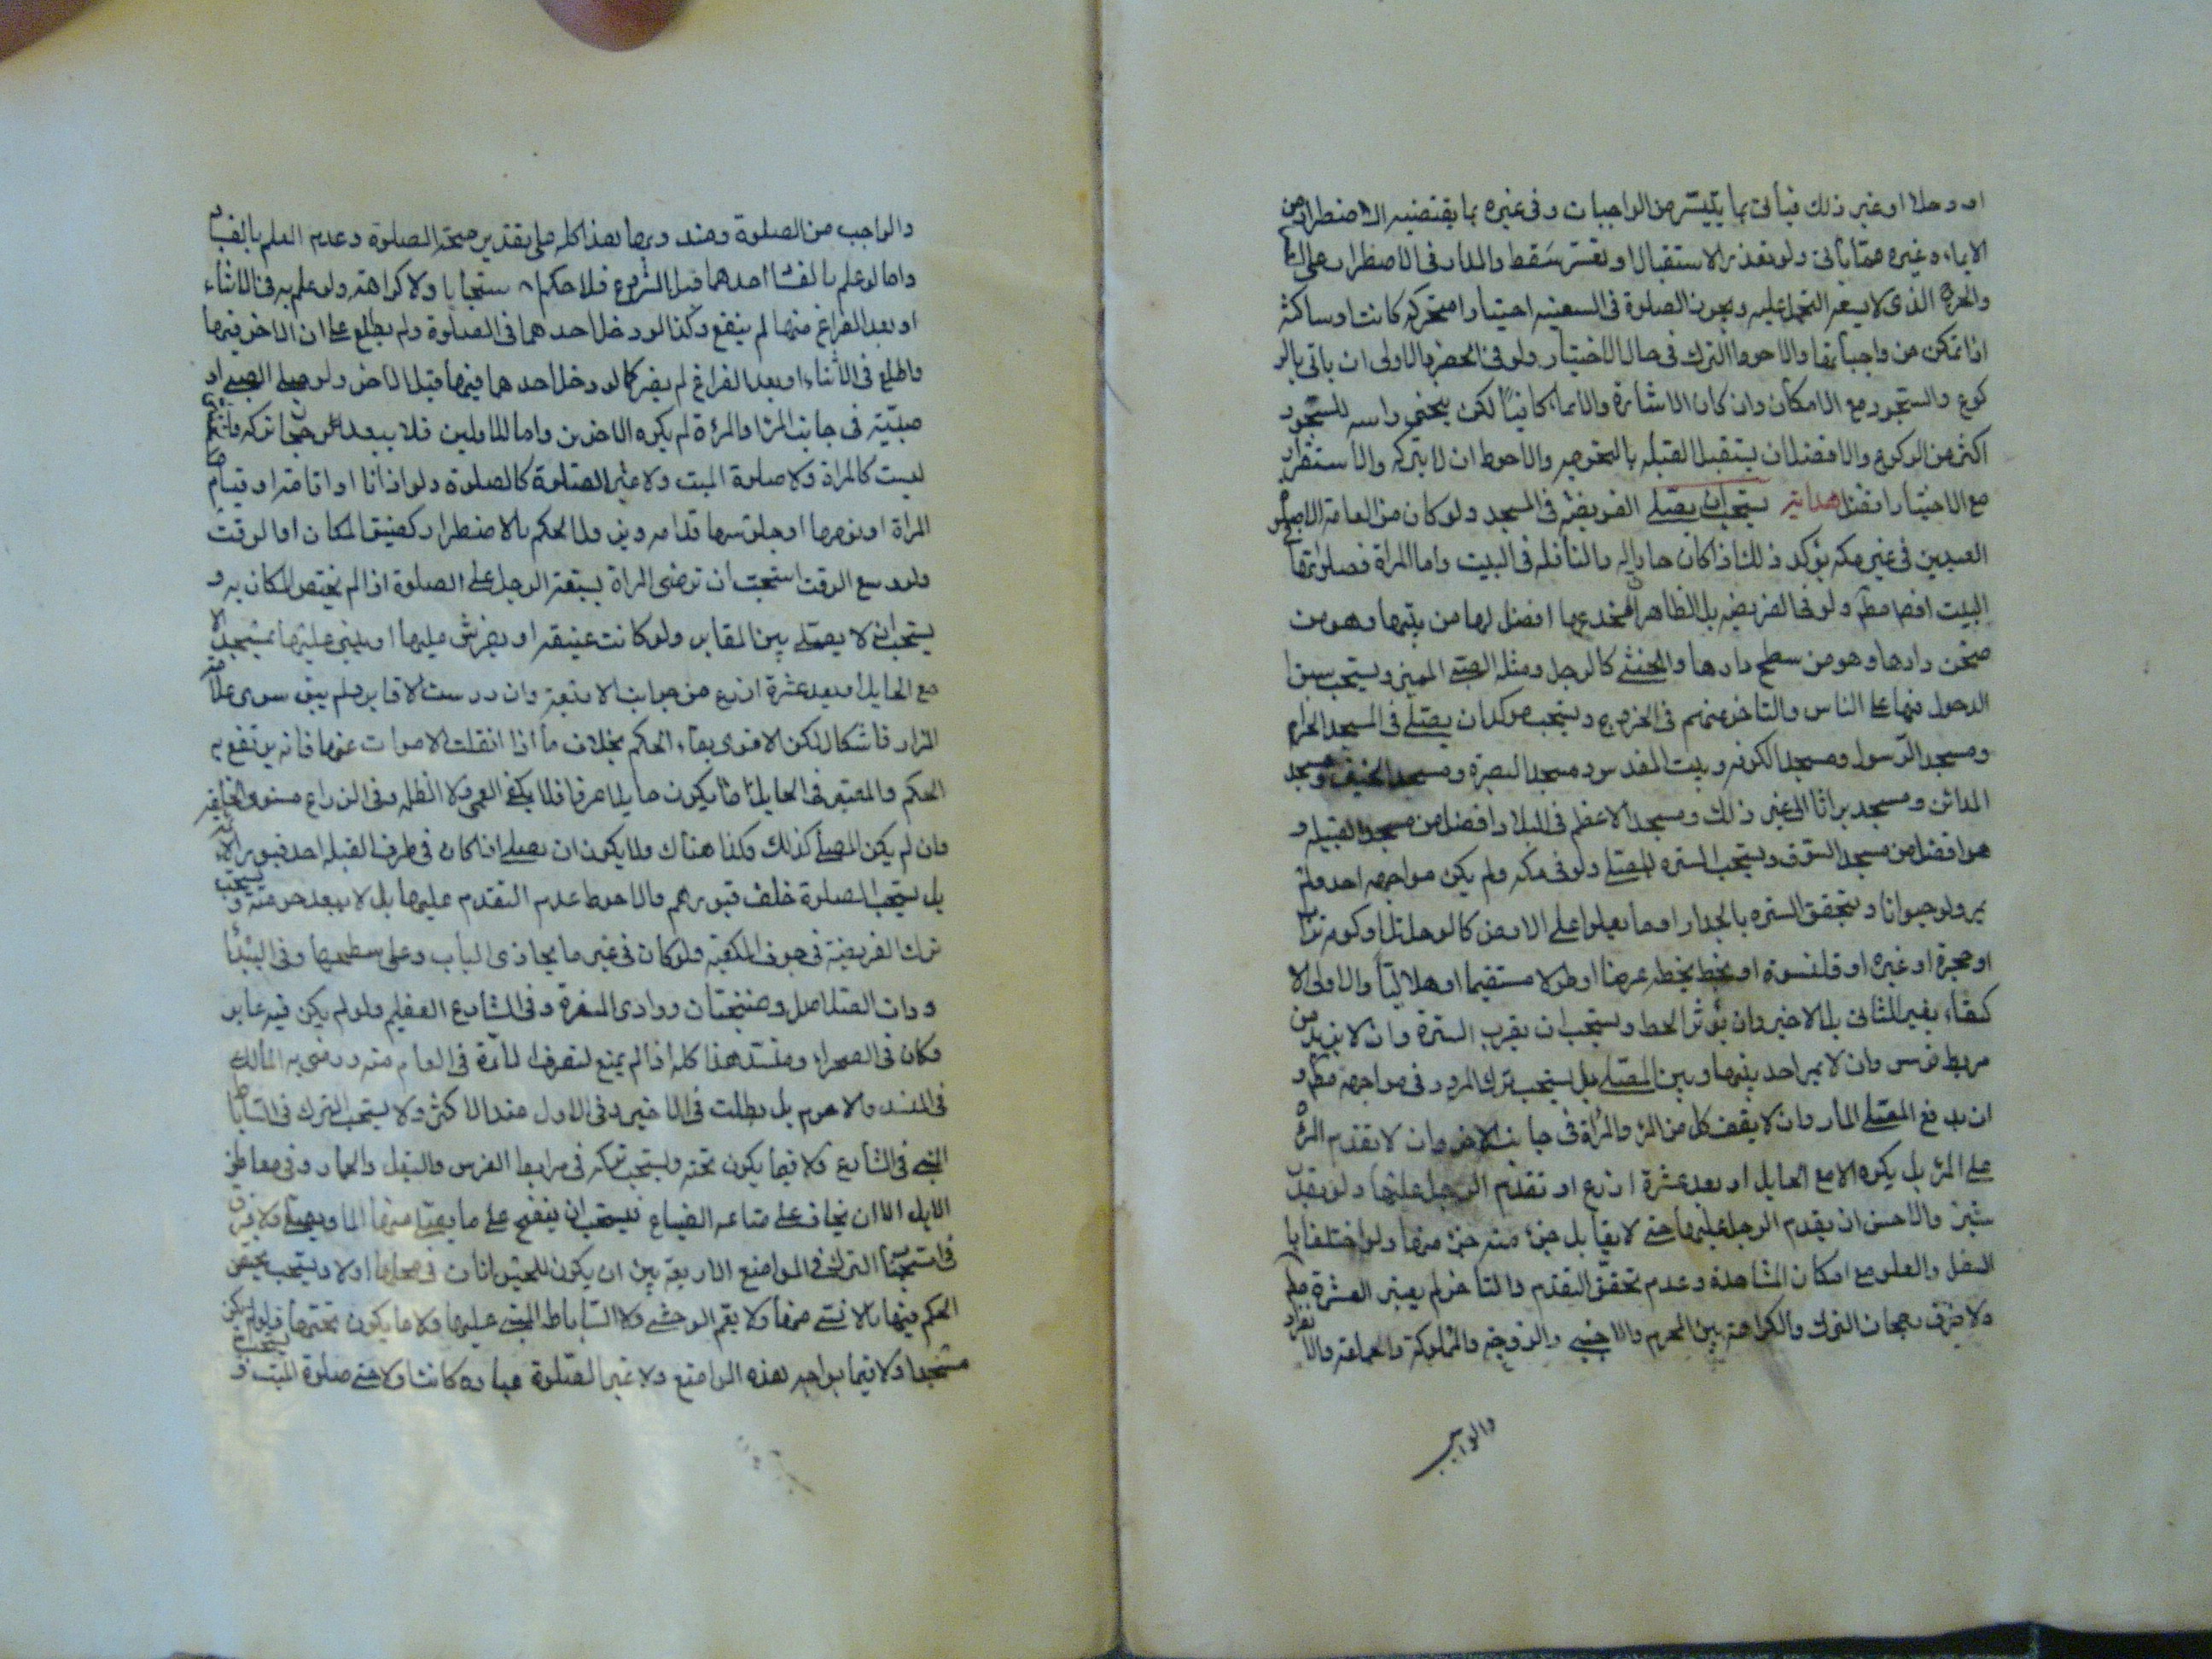 او وحلا او غير ذلك فيأتى بما يتيسر من الواجبات وفى غيره بما يقتضيه الاضطرار من
الايماء وغيره مما يأتى ولو تعذر الاستقبال او تعسر سقط والمدار فى الاضطرار على
والحرج الذى لا يسعه التحمل عليه ويجوز الصلوة فى السفينه اختيارا متحركه كانت او ساكنه
اذا تمكن من واجباتها والاحوط الترك فى حال الاختيار ولو فى الحضر والاولى ان ياتى بالر
كوع والسجود مع الامكان وان كان الاشارة والايماء كافيا لكن ينحنى راسه للسجود
اكثر من الركوع والافضل ان يستقبل القبله بالتحوير والاحوط ان لا يتركه والاستقرار
مع الاختيار افضل هدايه يستحب ان يصلى الفريضه فى المسجد ولو كان من العامه الا صلوة
العيدين فى غير مكه يؤكد ذلك اذا كان جارا له والنافله فى البيت واما المراة فصلوتها
البيت افضل مط ولو فى الفريضه بل الظاهر ان مخدعها افضل لها من بيتها وهو من
صحن دارها وهو من سطح دارها والخنثى كالرجل ومثله الصبى المميز ويستحب سبق
الدخول فيها على الناس والتاخر عنهم فى الخروج ويستحب مؤكدا ان يصلى فى المسجد الحرام
ومسجد الرسول ومسجد الكوفه وبيت المقدس ومسجد البصرة ومسجد الخيف ومسجد
المدائن ومسجد براثا الى غير ذلك ومسجد الاعظم فى البلاد افضل من مسجد القبيله و
هو افضل من مسجد السوق ويستحب الستره للمصلى ولو فى مكه ولم يكن مواجهه احد ولم
يمر ولو حيوانا ويتحقق الستره بالجدار او ما يعلوا على الارض كالرحل بل او كومه تراب
او حجرة او غيره او قلنسوة او بخط يخطه عرضا او طولا مستقيما او هلاليا والاولى الا
كتفاء بغير الثانى بل الاخير وان يؤثر الخط ويستحب ان يقرب السترة وان لا يزيد من
مربط فرس وان لا يمر احد بينها وبين المصلى بل يستحب ترك المرور فى مواجهه مط و
ان يدفع المصلى المار وان لا يقف كل من المرء والمراة فى جانب الاخر وان لا تقدم المرأة
على المرء بل يكره الا مع الحايل او بعد عشرة اذرع او تقدم الرجل عليها ولو بقدر
شبر والاحسن ان يقدم الرجل عليها حتى لا يقابل جزء منه جزء منها ولو اختلفا با
السفل والعلو مع امكان المشاهدة وعدم تحقق التقدم والتاخر لم يعتبر العشرة
ولا فرق رجحان الترك والكراهه بين المحرم والاجنبى والزوجه والمملوكة والجماعه والانفراد
والواجب
والواجب من الصلوة وضده وربما هذا كله على تقدير صحة الصلوة وعدم العلم بالفساد
واما لو علم بالفساد احدهما قبل الشروع فلا حكم استحبابا ولا كراهه ولو علم به فى الاثناء
او بعد الفراغ منها لم ينفع وكذا لو دخل احدهما فى الصلوة ولم يطلع على ان الاخر فيها
واطلع فى الاثناء او بعد الفراغ لم يضر كما لو دخل احدهما فيها قبل الاخر ولو صلى الصبى او
صبيه فى جانب المرء والمرءة لم يكره الاخرين واما للاولين فلا يبعد رجحان تركه والخنثى
ليست كالمراة ولا صلوة الميت ولا غير الصلوة كالصلوة ولو اذانا او اقامه او قيام
المراة او نومها او جلوسها قدامه وينزول الحكم بالاضطرار كضيق المكان او الوقت
ولو وسع الوقت استحب ان ترضى المراة بسبقه الرجل على الصلوة اذا لم يختص المكان به و
يستحب ان لا يصلى بين المقابر ولو كانت عتيقه او يفرش عليها او يبنى عليها مسجد الا
مع الحايل او بعد عشرة اذرع من جوانب الاربعه وان درست المقابر ولم يبق سوى علامة
المزار فاشكال لكن الاقوى بقاء الحكم بخلاف ما اذا انقلت الاموات عنها فانه يرتفع به
الحكم والمعتبر فى الحايل ما يكون حايلا عرفا فلا يكفى العمى ولا الظلمه وفى الذراع مستوى الخلقه
وان لم يكن المصلى كذلك وكذا هناك ولا يكون ان يصلى اذا كان فى طرف القبله احد قبور الائمه
بل يستحب الصلوة خلف قبورهم والاحوط عدم التقدم عليها بل لا يبعد حرمته ويستحب
ترك الفريضه فى جوف الكعبه ولو كان فى غير ما يحاذى الباب وعلى سطحها وفى البيداء
وذات الصلاصل وضجنان ووادى الشقرة وفى الشارع العظيم ولو لم يكن فيه عابر
وكان فى الصحراء وهذا كله اذا لم يمنع لتصرف المارة فى العام منه ورضى به المالك
فى المنسد والا حرم بل بطلت فى الاخير وفى الاول عند الاكثر ولا يستحب الترك فى الساباط
المبنى فى الشارع ولا فيما يكون تحته ويستحب تركه فى مرابط الفرس والبغل والحمار وفى معاطن
الابل الا ان يخاف على متاعه الضياع فيستحب ان ينضح على ما يصلى منها الماء ويصلى ولا فرق
فى استحباب الترك فى المواضع الاربعه بين ان يكون للحيوانات فى محلها او لا ويستحب يختص
الحكم فيها بالانسى منها ولا يعم الوحشى ولا الساباط المبنى عليها ولا ما يكون تحتها ولو لم يكن
مسجدا ولا فيما يواجه هذه المواضع ولا غير الصلوة عبادة كانت او لا حتى صلوة الميت ويستحب